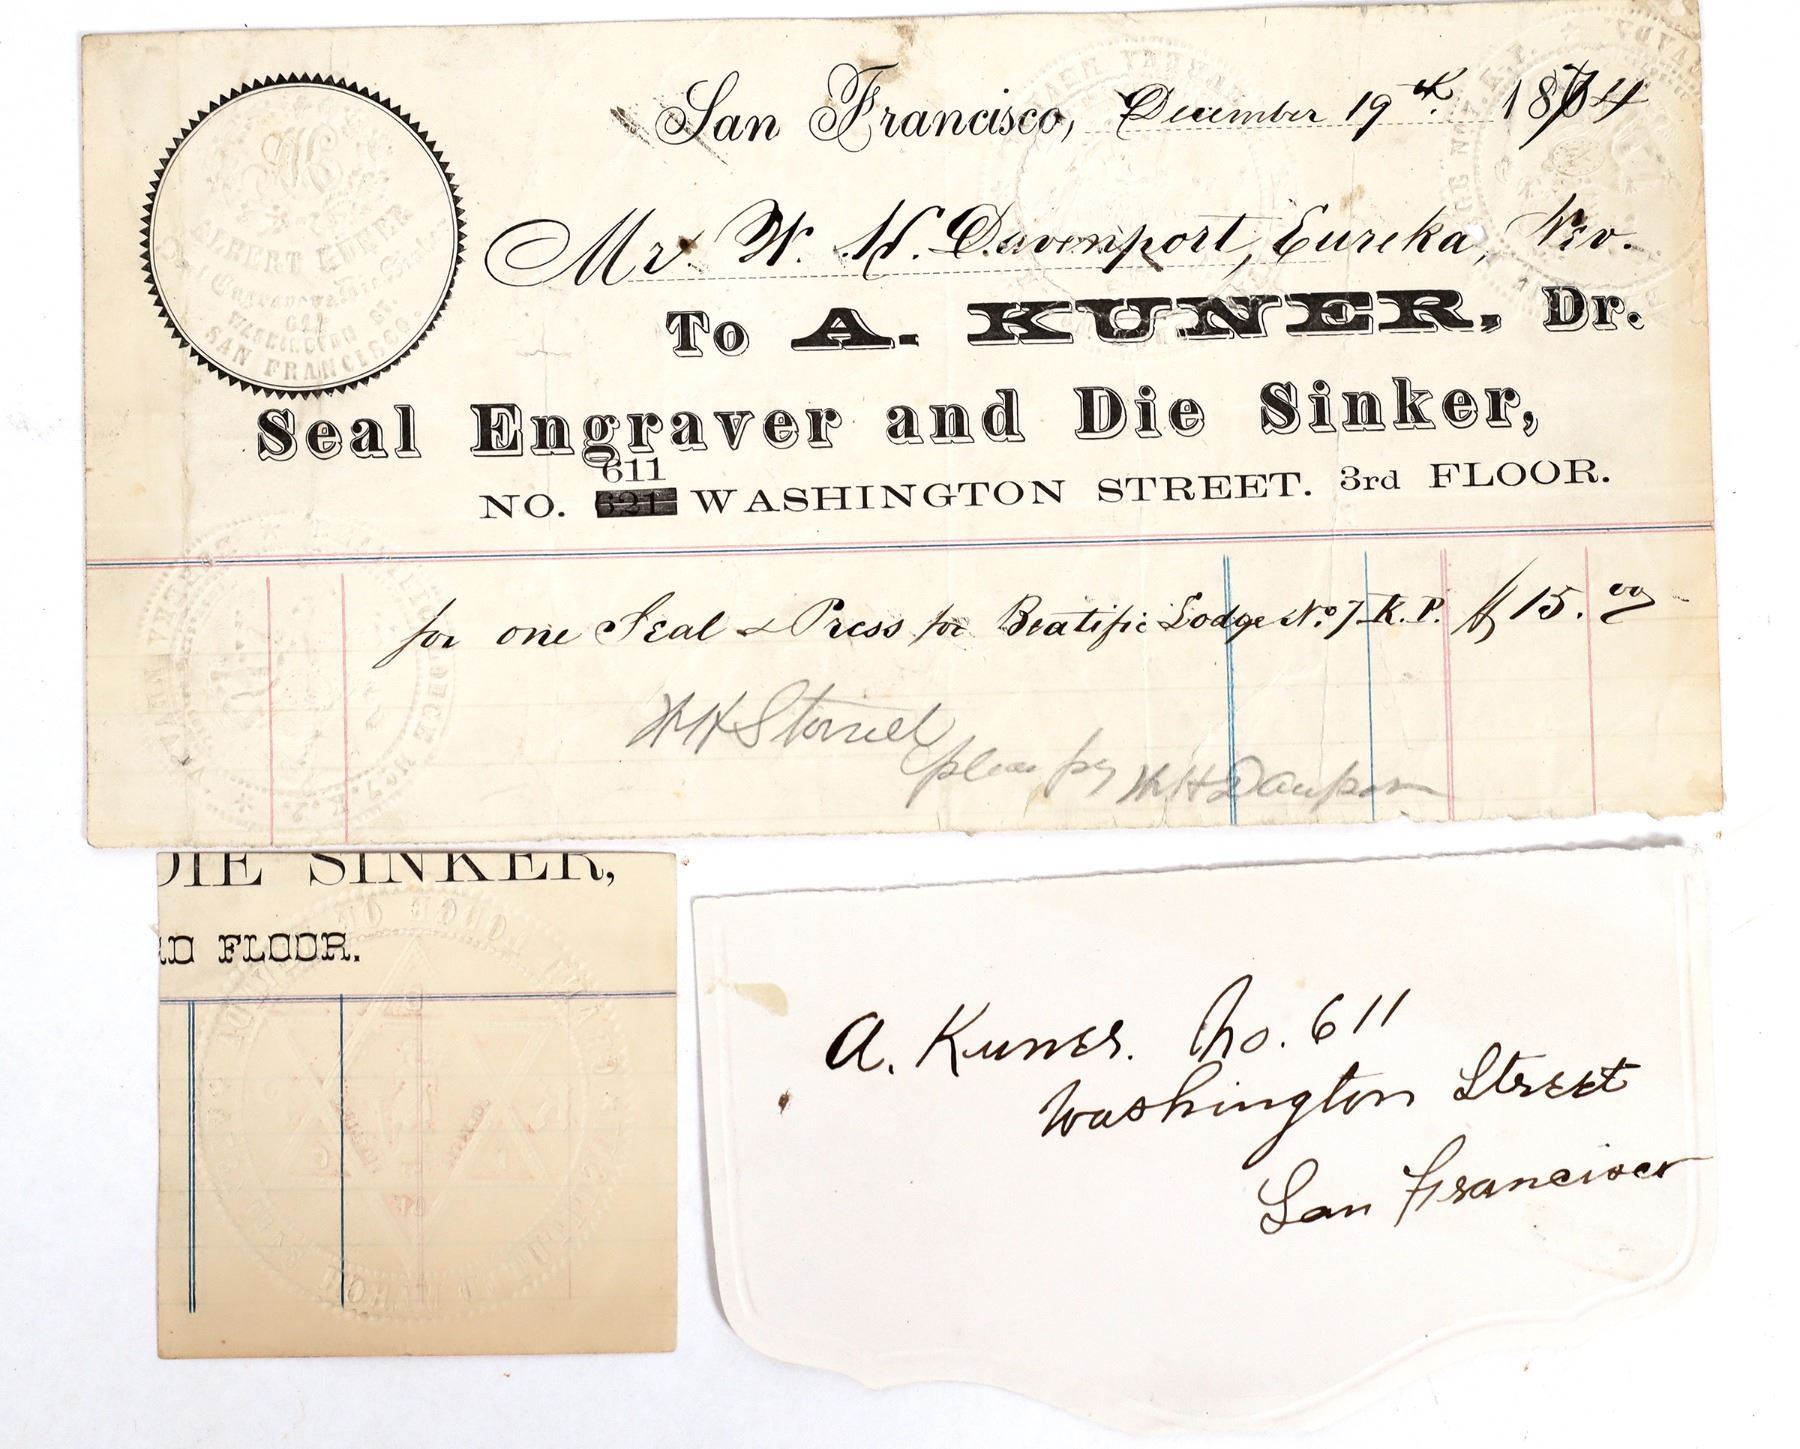 San Francisco, December 19th 1874
Mr. W. H. Davenport, Eureka, Nev.
To A. KUNER, Dr.
Seal Engraver and Die Sinker,
611
NO. 621 WASHINGTON STREET. 3rd FLOOR.
ALBERT KUNER
Seal Engraver & Die Sinker
611
WASHINGTON ST.
SAN FRANCISCO.
for one Seal & Press for Beatific Lodge No. 7. K. P. $15.00
W H
please pay W H Davenport
DIE SINKER,
RD FLOOR.
A. Kuner. No. 611
Washington Street
San Francisco